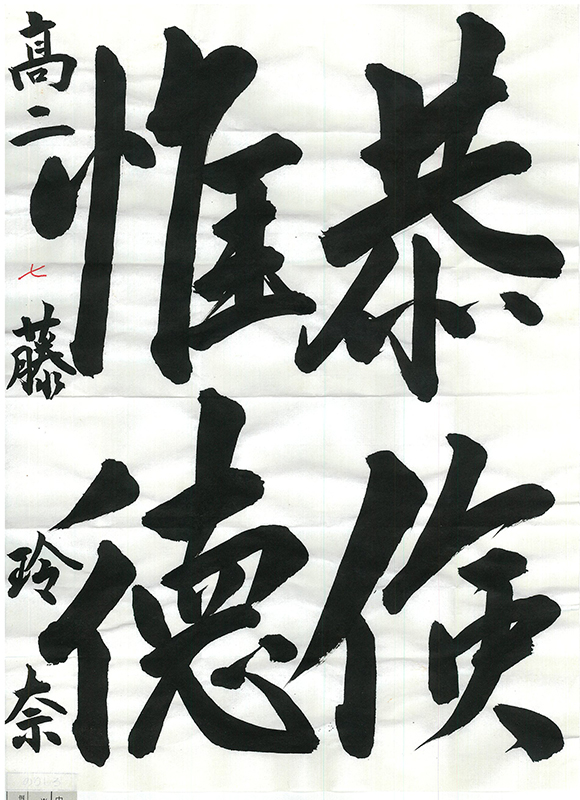 恭倹
惟徳
高二 七 藤 玲奈